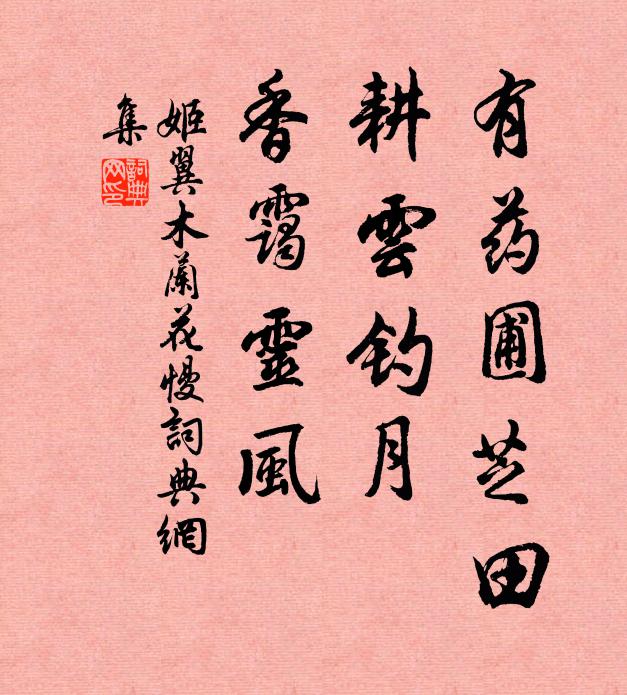 有药圃芝田
耕雲钓月
香靄靈風
姬翼木蘭花慢詞典網
集
詞典網印